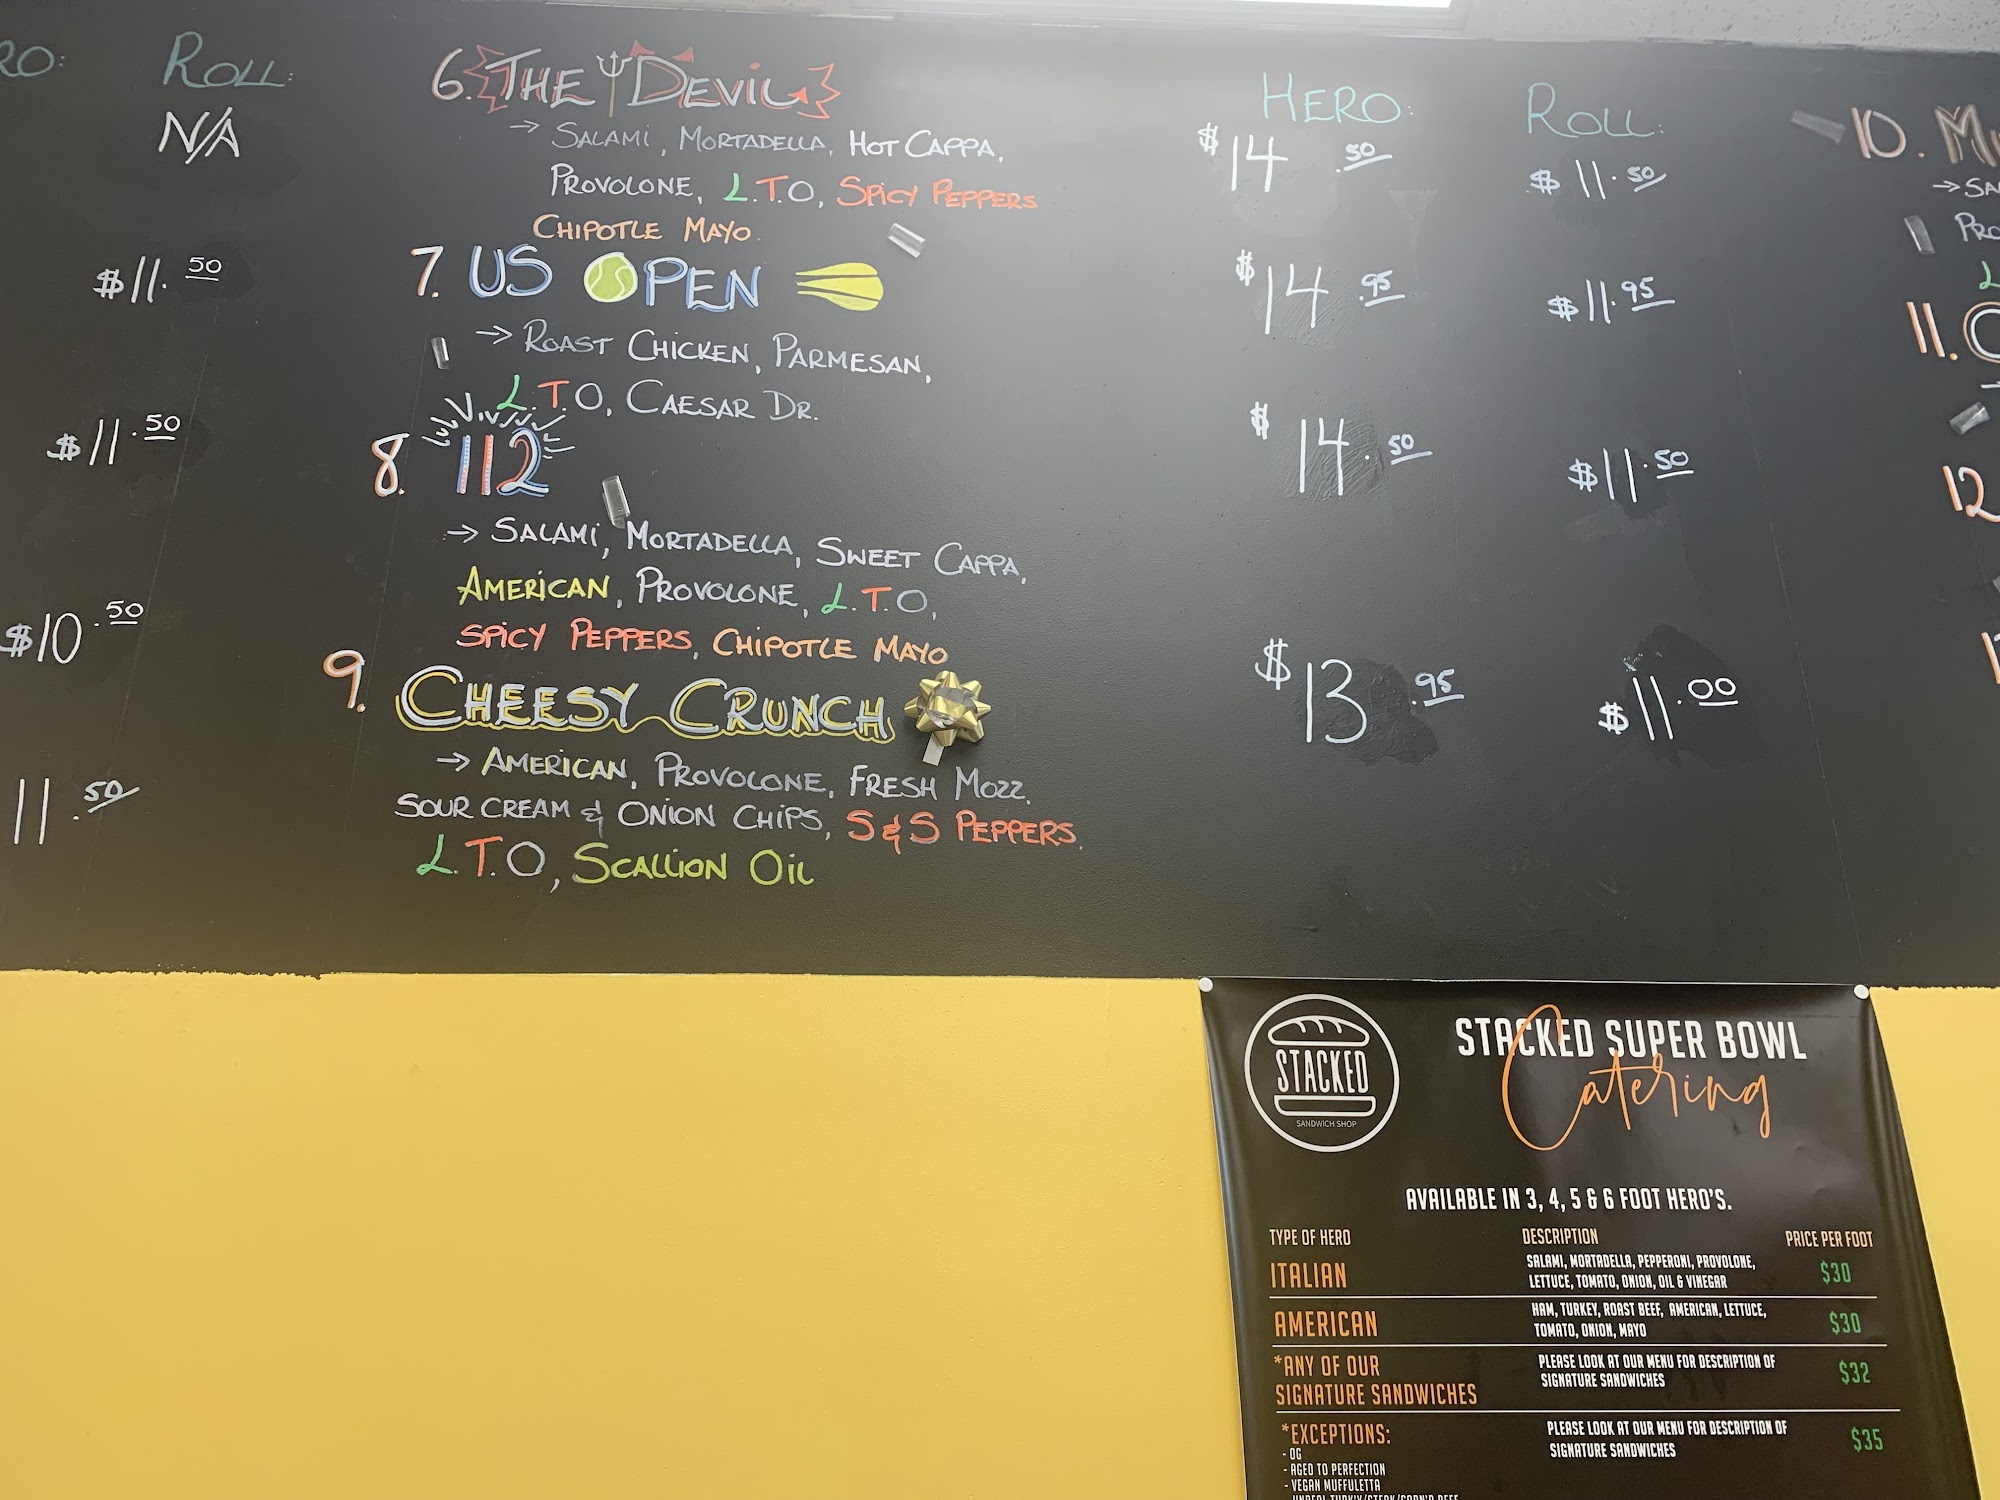 RO:
ROLL:
N/A
$11.50
$11.50
$10.50
11.50
6. THE DEVIL
→ SALAMI, MORTADELLA, HOT CAPPA,
PROVOLONE, L.T.O, SPICY PEPPERS
CHIPOTLE MAYO.
7. US OPEN
→ ROAST CHICKEN, PARMESAN,
L.T.O, CAESAR DR.
8. 112
→ SALAMI, MORTADELLA, SWEET CAPPA,
AMERICAN, PROVOLONE, L.T.O,
SPICY PEPPERS, CHIPOTLE MAYO
9. CHEESY CRUNCH
→ AMERICAN, PROVOLONE, FRESH MOZZ,
SOUR CREAM & ONION CHIPS, S&S PEPPERS,
L.T.O, SCALLION OIL
HERO: ROLL:
$14.50 $11.50
$14.95 $11.95
$14.50 $11.50
$13.95 $11.00
10. M
→ SA
PRO
L
11.
12
STACKED
SANDWICH SHOP
STACKED SUPER BOWL
Catering
AVAILABLE IN 3, 4, 5 & 6 FOOT HERO'S.
TYPE OF HERO DESCRIPTION PRICE PER FOOT
ITALIAN SALAMI, MORTADELLA, PEPPERONI, PROVOLONE, $30
LETTUCE, TOMATO, ONION, OIL & VINEGAR
AMERICAN HAM, TURKEY, ROAST BEEF, AMERICAN, LETTUCE, $30
TOMATO, ONION, MAYO
*ANY OF OUR PLEASE LOOK AT OUR MENU FOR DESCRIPTION OF $32
SIGNATURE SANDWICHES SIGNATURE SANDWICHES
*EXCEPTIONS: PLEASE LOOK AT OUR MENU FOR DESCRIPTION OF $35
SIGNATURE SANDWICHES
- OG
- AGED TO PERFECTION
- VEGAN MUFFULETTA